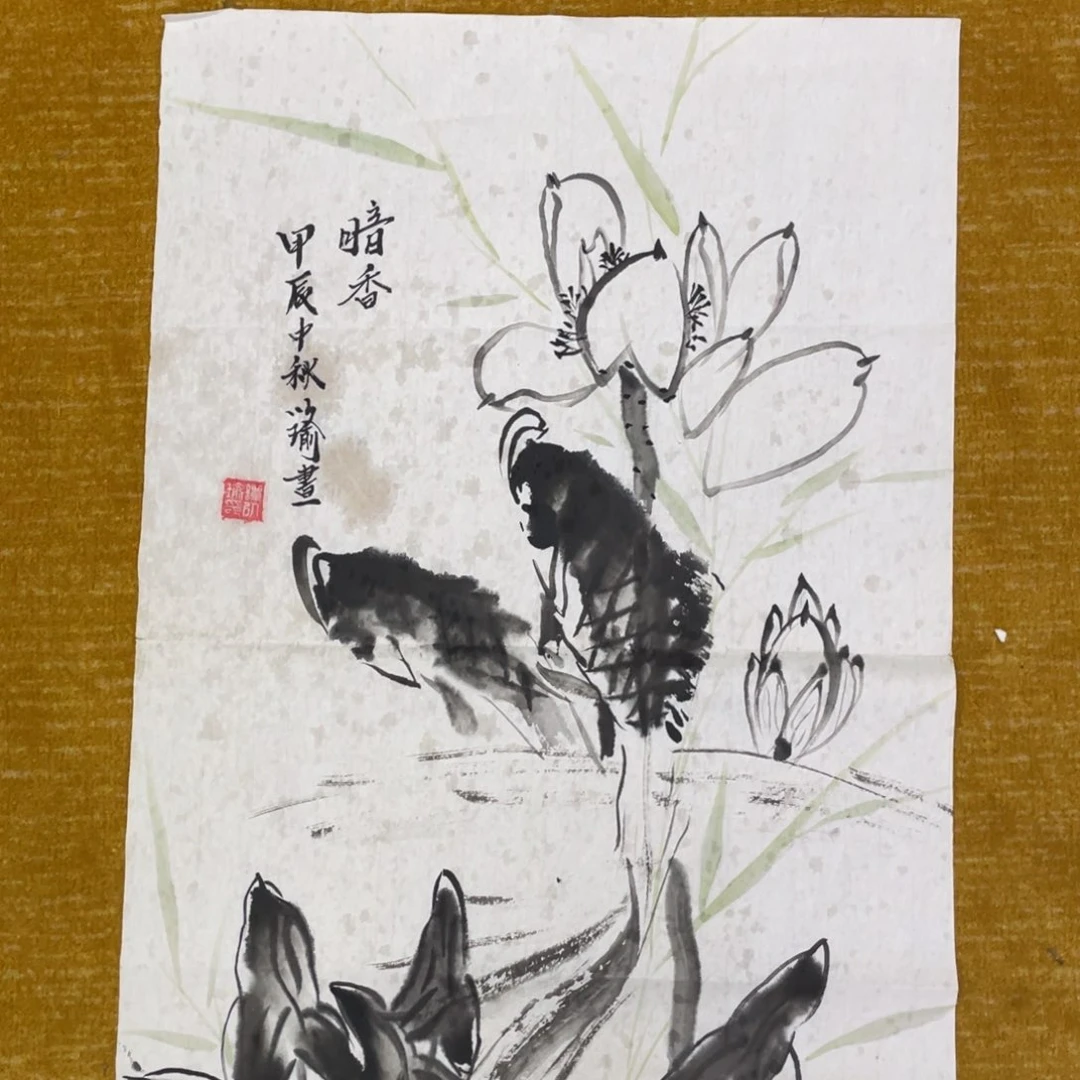 暗香
甲辰中秋以瑜畫